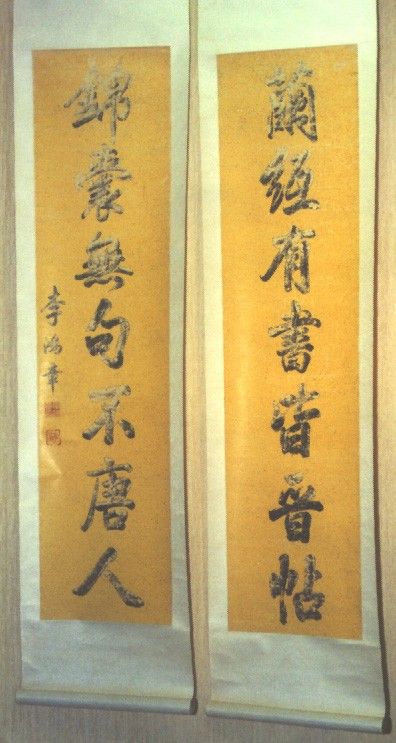 繭紙有書皆晉帖
錦囊無句不唐人
李鴻章